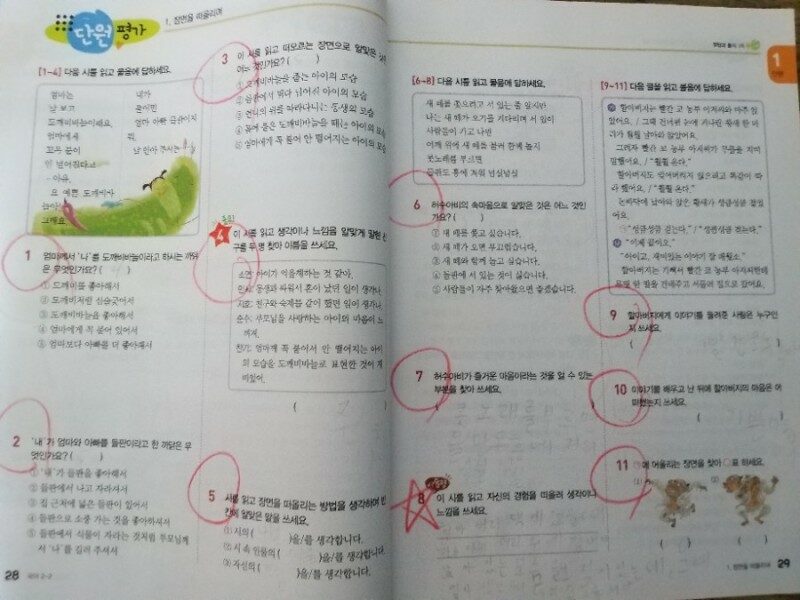 단원 평가
1. 장면을 떠올리며
[1~4] 다음 시를 읽고 물음에 답하세요.
엄마는
날 보고
도깨비바늘이래요.
엄마에게
꼬옥 붙어
안 떨어진다고
내가
들이면
엄마 아빠
1 엄마께서 '나'를 도깨비바늘이라고 하시는 까닭
은 무엇인가요? ( )
① 으깨이를 좋아해서
② 도깨비처럼 심술궂어서
③ 도깨비바늘을 좋아해서
④ 엄마에게 꼭 붙어 있어서
⑤ 엄마보다 아빠를 더 좋아해서
2 '내'가 엄마와 아빠를 들판이라고 한 까닭은 무
엇인가요? ( )
① '내'가 들판을 좋아해서
② 들판에서 나고 자라셔서
③ 집 근처에 넓은 들판이 있어서
④ 들판으로 소풍 가는 것을 좋아하셔서
⑤ 들판에서 식물이 자라는 것처럼 부모님께
서 '나'를 길러 주셔서
28 국어 2-2
3 이 시를 읽고 떠오르는 장면으로 알맞은 것은
어느 것인가요? ( )
① 도깨비바늘을 줍는 아이의 모습
② 들판에서 뛰다 넘어진 아이의 모습
③ 언니의 뒤를 따라다니는 동생의 모습
④ 몸에 붙은 도깨비바늘을 떼는 아이의 모습
⑤ 엄마에게 꼭 붙어 안 떨어지는 아이의 모습
4 이 시를 읽고 생각이나 느낌을 알맞게 말한 친
구를 두 명 찾아 이름을 쓰세요.
소연: 아이가 억울해하는 것 같아.
민서: 동생과 싸워서 혼이 났던 일이 생각나.
지호: 친구와 숙제를 같이 했던 일이 생각나.
은수: 부모님을 사랑하는 아이의 마음이 느
껴져.
찬기: 엄마께 꼭 붙어서 안 떨어지는 아이
의 모습을 도깨비바늘로 표현한 것이 재
미있어.
( )
5 시를 읽고 장면을 떠올리는 방법을 생각하여 빈
칸에 알맞은 말을 쓰세요.
(1) 시의 ( )을/를 생각합니다.
(2) 시 속 인물의 ( )을/를 생각합니다.
(3) 자신의 ( )을/를 생각합니다.
1
[6~8] 다음 시를 읽고 물음에 답하세요.
새 떼를 쫓으려고 서 있는 줄 알지만
나는 새 떼가 오기를 기다리며 서 있어
사람들이 가고 나면
어깨 위에 새 떼를 불러 함께 놀지
콧노래를 부르면
들판도 흥에 겨워 넘실넘실
6 허수아비의 속마음으로 알맞은 것은 어느 것인
가요? ( )
① 새 떼를 쫓고 싶습니다.
② 새 떼가 오면 무섭습니다.
③ 새 떼와 함께 놀고 싶습니다.
④ 들판에 서 있는 것이 싫습니다.
⑤ 사람들이 자주 찾아왔으면 좋겠습니다.
7 허수아비가 즐거운 마음이라는 것을 알 수 있는
부분을 찾아 쓰세요.
8 이 시를 읽고 자신의 경험을 떠올려 생각이나
느낌을 쓰세요.
[9~11] 다음 글을 읽고 물음에 답하세요.
할아버지는 빨간 코 농부 아저씨와 마주 앉
았어요. / 그때 건너편 논에 커다란 황새 한 마
리가 훨훨 날아와 앉았어요.
그러자 빨간 코 농부 아저씨가 무릎을 치며
말했어요. / "훨훨 온다."
할아버지도 잊어버리지 않으려고 똑같이 따
라 했어요. / "훨훨 온다."
논바닥에 내려와 앉은 황새가 성큼성큼 걸었
어요.
"성큼성큼 걷는다." / "성큼성큼 걷는다."
"아이고, 재미있는 이야기 잘 배웠소."
할아버지는 기뻐서 빨간 코 농부 아저씨한테
무명 한 필을 건네주고 서둘러 집으로 갔어요.
9 할아버지에게 이야기를 들려준 사람은 누구인
지 쓰세요.
( )
10 이야기를 배우고 난 뒤에 할아버지의 마음은 어
떠했는지 쓰세요.
( )
11 ㉠에 어울리는 장면을 찾아 ○표 하세요.
(1) (2)
( ) ( )
1. 장면을 떠올리며 29